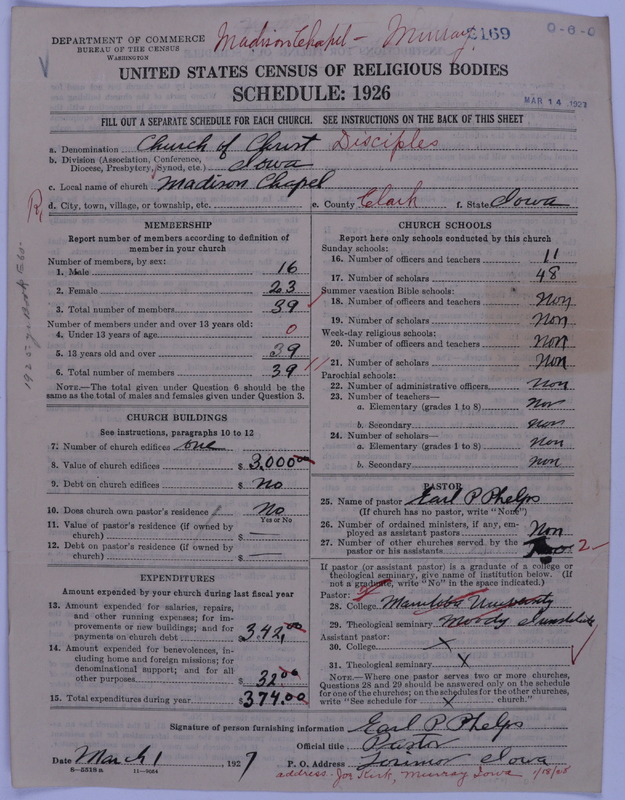 DEPARTMENT OF COMMERCE
BUREAU OF THE CENSUS
WASHINGTON
Madison Chapel - Murray
3169
0-6-0
UNITED STATES CENSUS OF RELIGIOUS BODIES
SCHEDULE: 1926
MAR 14 1927
FILL OUT A SEPARATE SCHEDULE FOR EACH CHURCH. SEE INSTRUCTIONS ON THE BACK OF THIS SHEET
a. Denomination Church of Christ Disciples
b. Division (Association, Conference, Diocese, Presbytery, Synod, etc.) Iowa
c. Local name of church Madison Chapel
d. City, town, village, or township, etc. e. County Clark f. State Iowa
MEMBERSHIP
Report number of members according to definition of member in your church
Number of members, by sex:
1. Male 16
2. Female 23
3. Total number of members 39
Number of members under and over 13 years old:
4. Under 13 years of age 0
5. 13 years old and over 39
6. Total number of members 39
NOTE.—The total given under Question 6 should be the same as the total of males and females given under Question 3.
CHURCH BUILDINGS
See instructions, paragraphs 10 to 12
7. Number of church edifices one
8. Value of church edifices $ 3,000.00
9. Debt on church edifices $ No
10. Does church own pastor's residence? No
Yes or No
11. Value of pastor's residence (if owned by church) $ —
12. Debt on pastor's residence (if owned by church) $ —
EXPENDITURES
Amount expended by your church during last fiscal year
13. Amount expended for salaries, repairs, and other running expenses; for improvements or new buildings; and for payments on church debt $ 342.00
14. Amount expended for benevolences, including home and foreign missions; for denominational support; and for all other purposes $ 32.00
15. Total expenditures during year $ 374.00
CHURCH SCHOOLS
Report here only schools conducted by this church
Sunday schools:
16. Number of officers and teachers 11
17. Number of scholars 48
Summer vacation Bible schools:
18. Number of officers and teachers Non
19. Number of scholars Non
Week-day religious schools:
20. Number of officers and teachers Non
21. Number of scholars Non
Parochial schools:
22. Number of administrative officers Non
23. Number of teachers—
a. Elementary (grades 1 to 8) Non
b. Secondary Non
24. Number of scholars—
a. Elementary (grades 1 to 8) Non
b. Secondary Non
PASTOR
25. Name of pastor Earl P Phelps
(If church has no pastor, write "None")
26. Number of ordained ministers, if any, employed as assistant pastors Non
27. Number of other churches served by the pastor or his assistants 2
If pastor (or assistant pastor) is a graduate of a college or theological seminary, give name of institution below. (If not a graduate, write "No" in the space indicated.)
Pastor:
28. College Manitoba University
29. Theological seminary Moody
Assistant pastor:
30. College X
31. Theological seminary X
NOTE.—Where one pastor serves two or more churches, Questions 28 and 29 should be answered only on the schedule for one of the churches; on the schedules for the other churches, write "See schedule for X church."
Signature of person furnishing information Earl P Phelps
Official title Pastor
Date March 1 1927
P. O. Address Lorimor Iowa
8—5518 a 11—9054
address - Joe Kirk, Murray Iowa 1/18/28